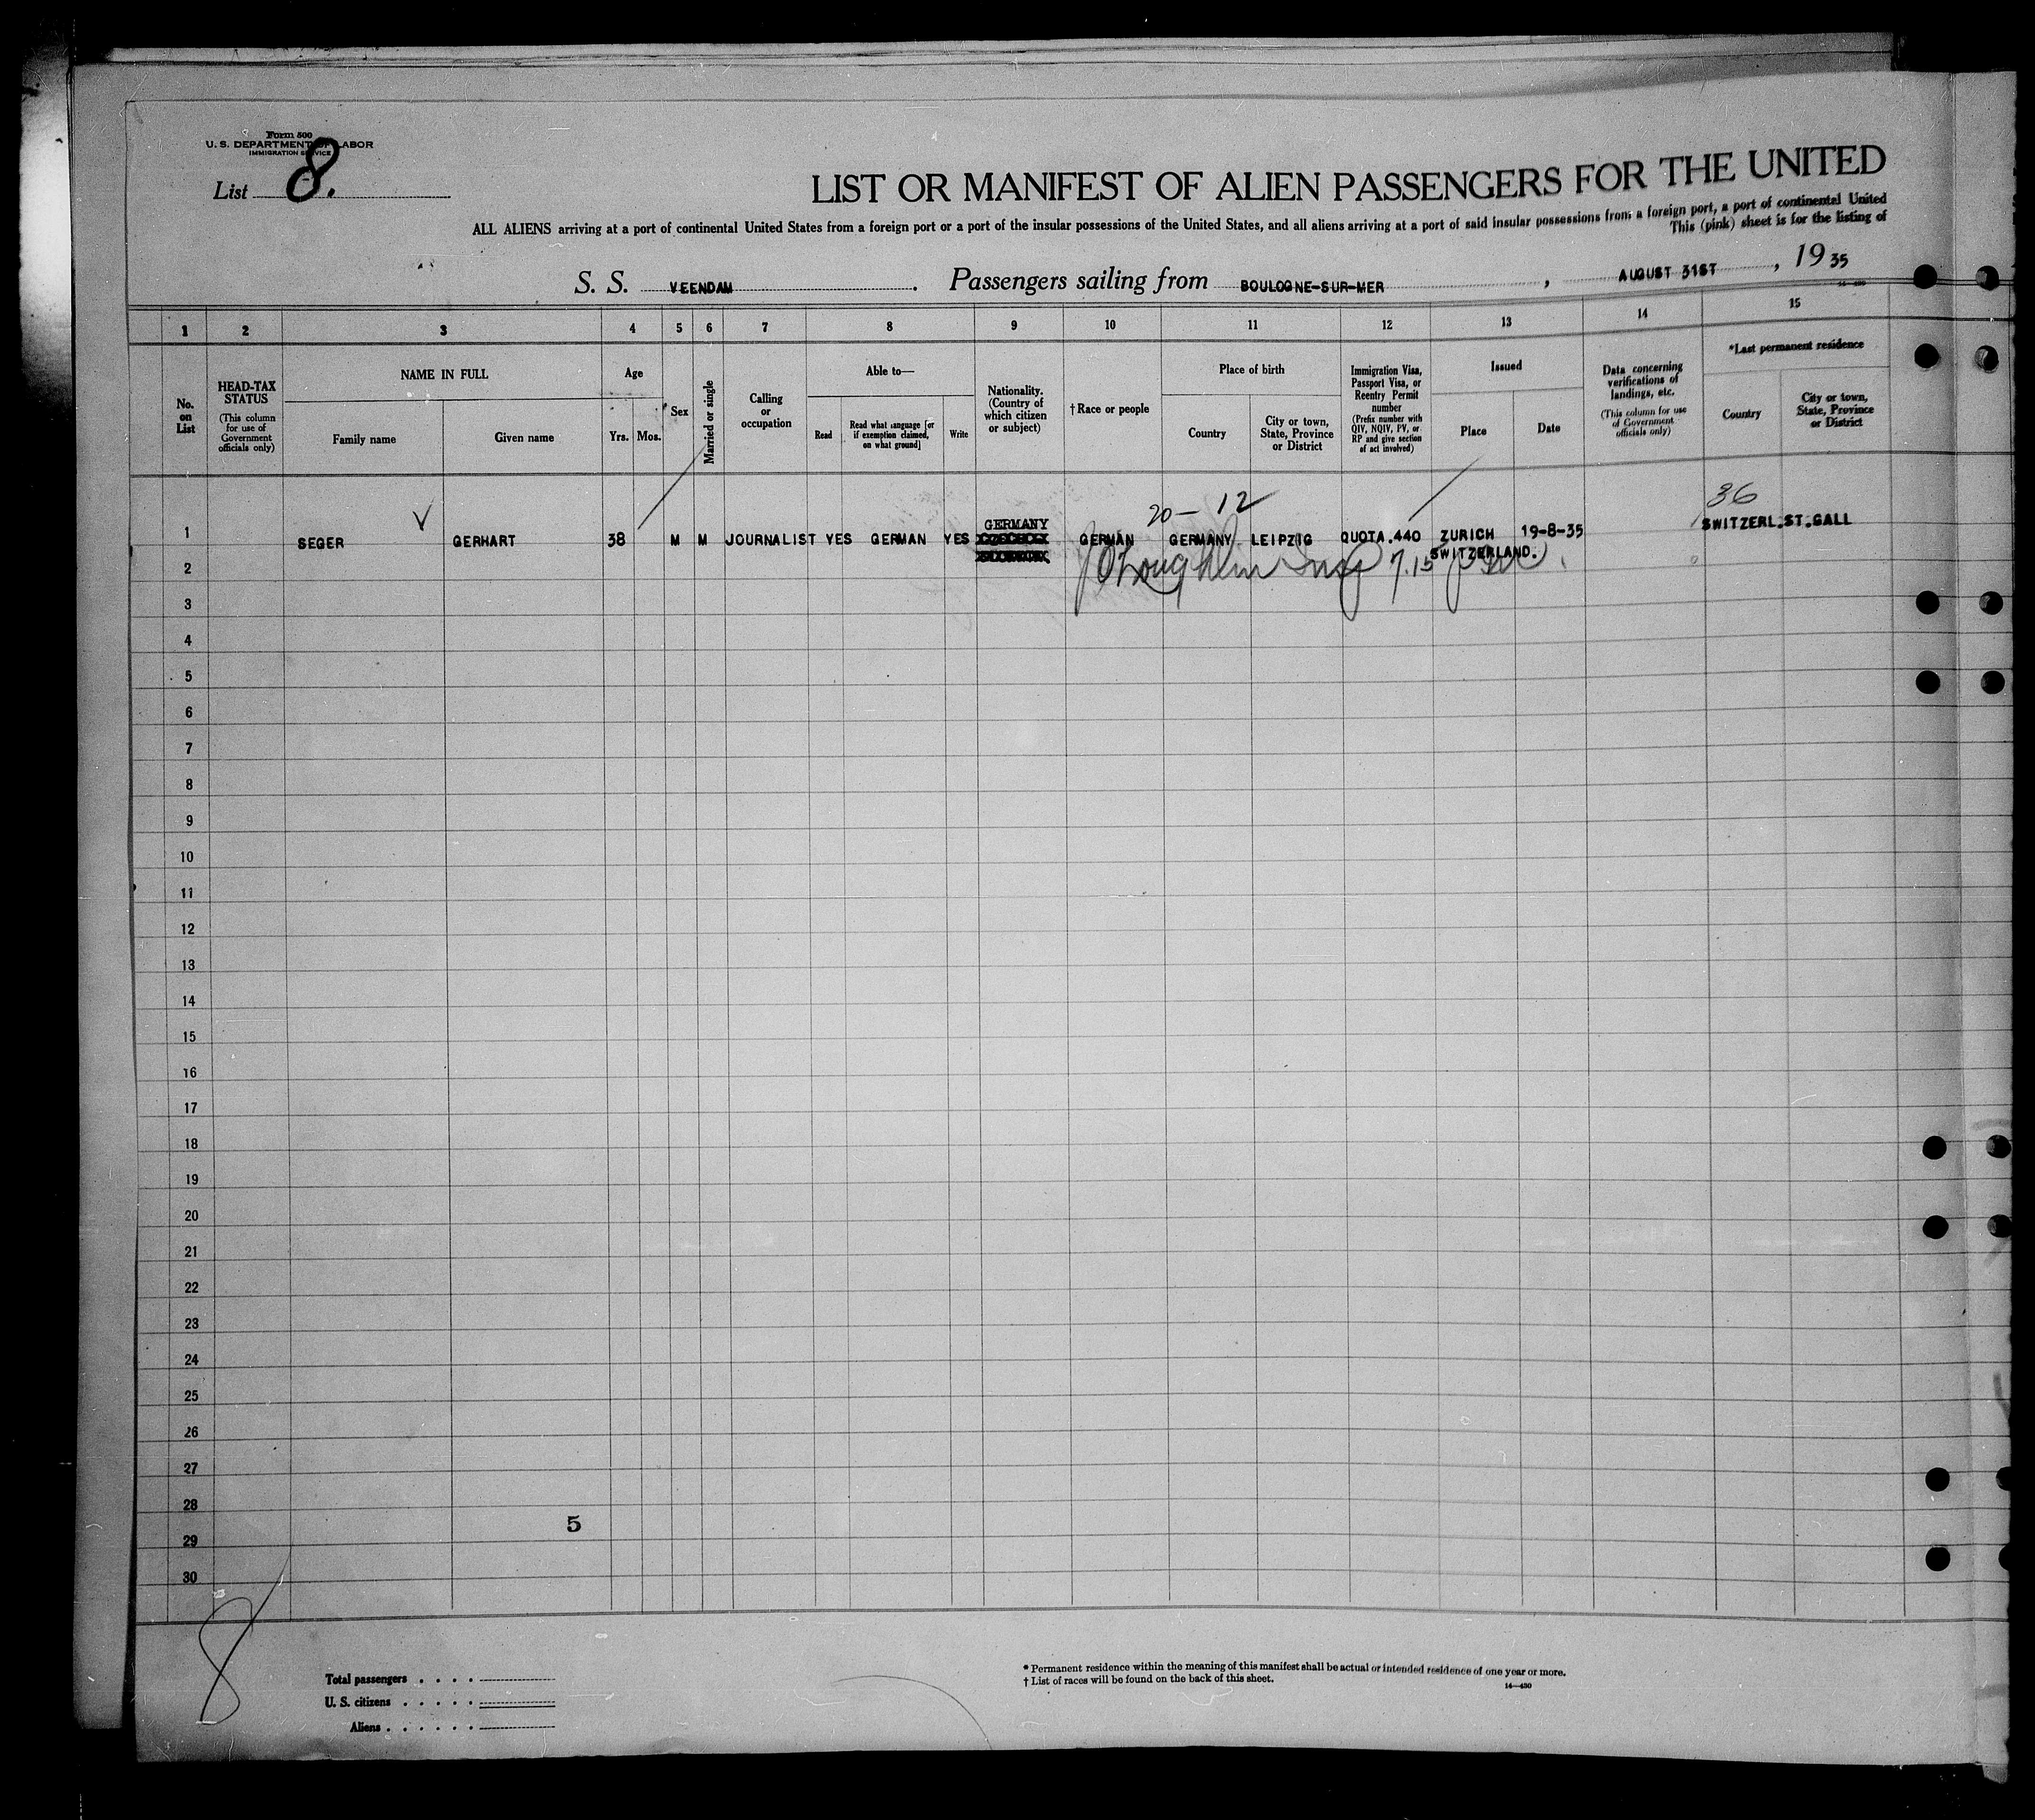 Form 500
U. S. DEPARTMENT OF LABOR
IMMIGRATION SERVICE
List 8.
LIST OR MANIFEST OF ALIEN PASSENGERS FOR THE UNITED
ALL ALIENS arriving at a port of continental United States from a foreign port or a port of the insular possessions of the United States, and all aliens arriving at a port of said insular possessions from a foreign port, a port of continental United
This (pink) sheet is for the listing of
S. S. VEENDAM. Passengers sailing from BOULOGNE-SUR-MER, AUGUST 31ST, 1935
1 2 3 4 5 6 7 8 9 10 11 12 13 14 15
No. on List
HEAD-TAX STATUS
(This column for use of Government officials only)
NAME IN FULL
Family name
Given name
Age
Yrs. Mos.
Sex
Married or single
Calling or occupation
Able to—
Read
Read what language [or if exemption claimed, on what ground]
Write
Nationality. (Country of which citizen or subject)
†Race or people
Place of birth
Country
City or town, State, Province or District
Immigration Visa, Passport Visa, or Reentry Permit number
(Prefix number with QIV, NQIV, PV, or RP and give section of act involved)
Issued
Place
Date
Data concerning verifications of landings, etc.
(This column for use of Government officials only)
*Last permanent residence
Country
City or town, State, Province or District
20 – 12
36
GERMANY
1 SEGER GERHART 38 M M JOURNALIST YES GERMAN YES GERMAN GERMANY LEIPZIG QUOTA.440 ZURICH 19-8-35 SWITZERL. ST.GALL
SWITZERLAND.
2 7.15
3
4
5
6
7
8
9
10
11
12
13
14
15
16
17
18
19
20
21
22
23
24
25
26
27
28
5
29
30
8
Total passengers . . . .
U. S. citizens . . . . .
Aliens . . . . . .
* Permanent residence within the meaning of this manifest shall be actual or intended residence of one year or more.
† List of races will be found on the back of this sheet.
14—430